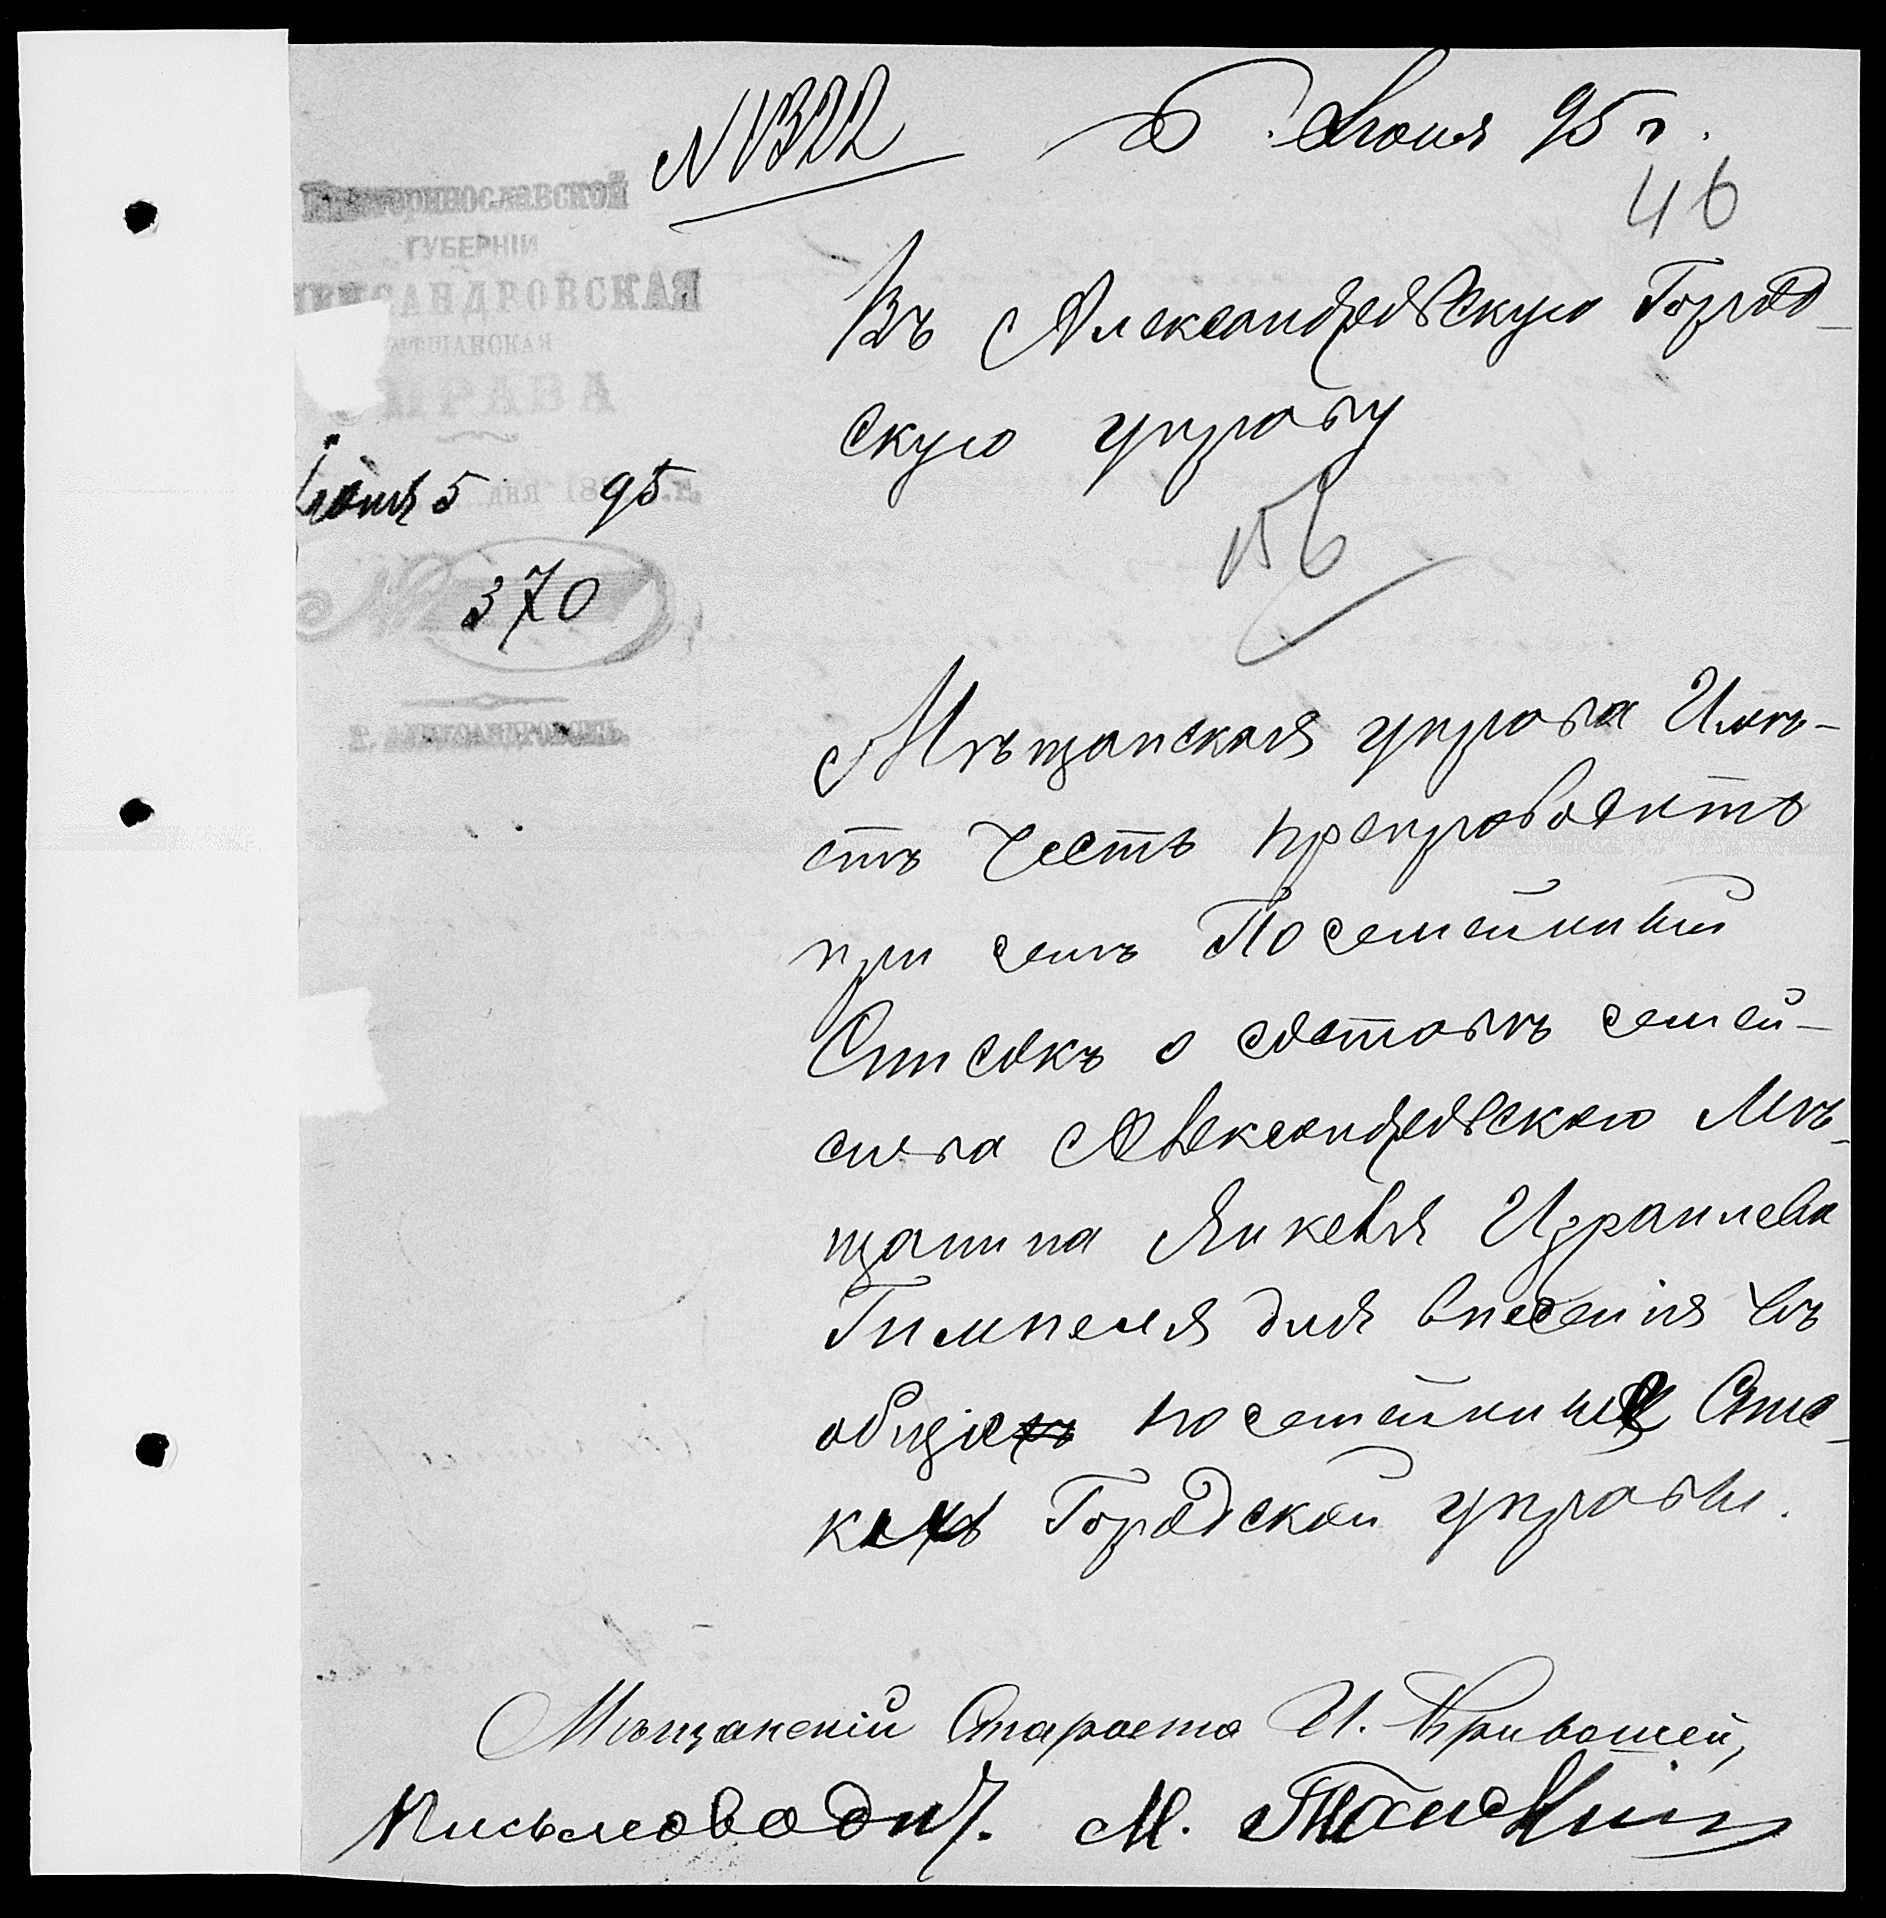 № 1322 6 Июня 95 г.
46
Екатеринославской
ГУБЕРНІИ
АЛЕКСАНДРОВСКАЯ
МѢЩАНСКАЯ
УПРАВА
Іюня 5 дня 1895 г.
№ 370
Г. АЛЕКСАНДРОВСКЪ.
Въ Александровскую Город-
скую управу
156
Мѣщанская управа Имѣ-
етъ Честь препроводить
при семъ Посемейный
Списокъ о составѣ семей-
ства Александровского Мѣ-
щанина Янкеля Израилева
Гимпеля для внесенія въ
общіе посемейные Спис-
ки Городской управы.
Мѣщанскій Староста И. Кривошей,
Письмоводит. М.